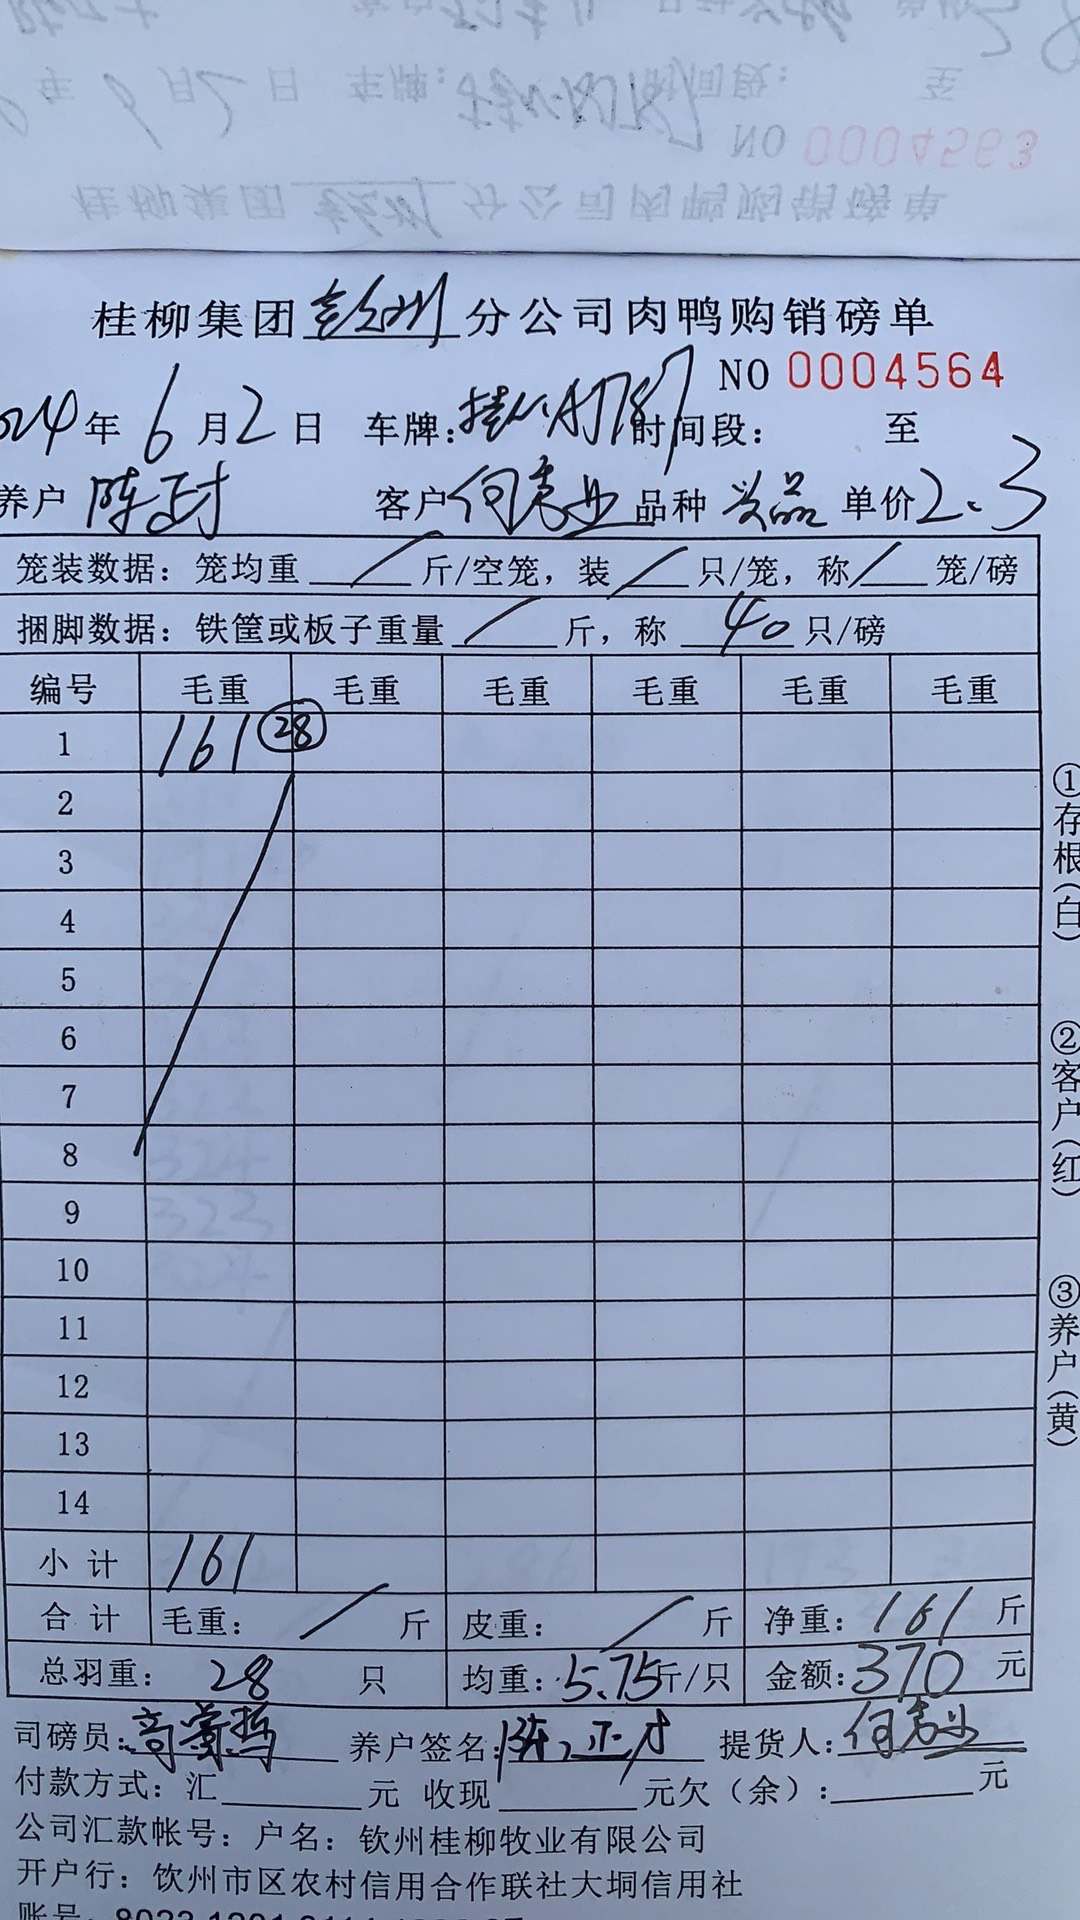 桂柳集团 分公司肉鸭购销磅单
NO 0004564
024年6月2日 车牌: 时间段: 至
养户 陈正才 客户 何 业 品种 次品 单价2.3
笼装数据: 笼均重 / 斤/空笼, 装 / 只/笼, 称 / 笼/磅
捆脚数据: 铁筐或板子重量 / 斤, 称 40 只/磅
编号 毛重 毛重 毛重 毛重 毛重 毛重
1 161 28
2
3
4
5
6
7
8
9
10
11
12
13
14
小计 161
合计 毛重: / 斤 皮重: / 斤 净重: 161 斤
总羽重: 28 只 均重: 5.75斤/只 金额:370 元
司磅员: 养户签名: 陈正才 提货人: 何 业
付款方式: 汇 元 收现 元欠(余): 元
公司汇款帐号: 户名: 钦州桂柳牧业有限公司
开户行: 钦州市区农村信用合作联社大垌信用社
账号:
①存根(白)
②客户(红)
③养户(黄)